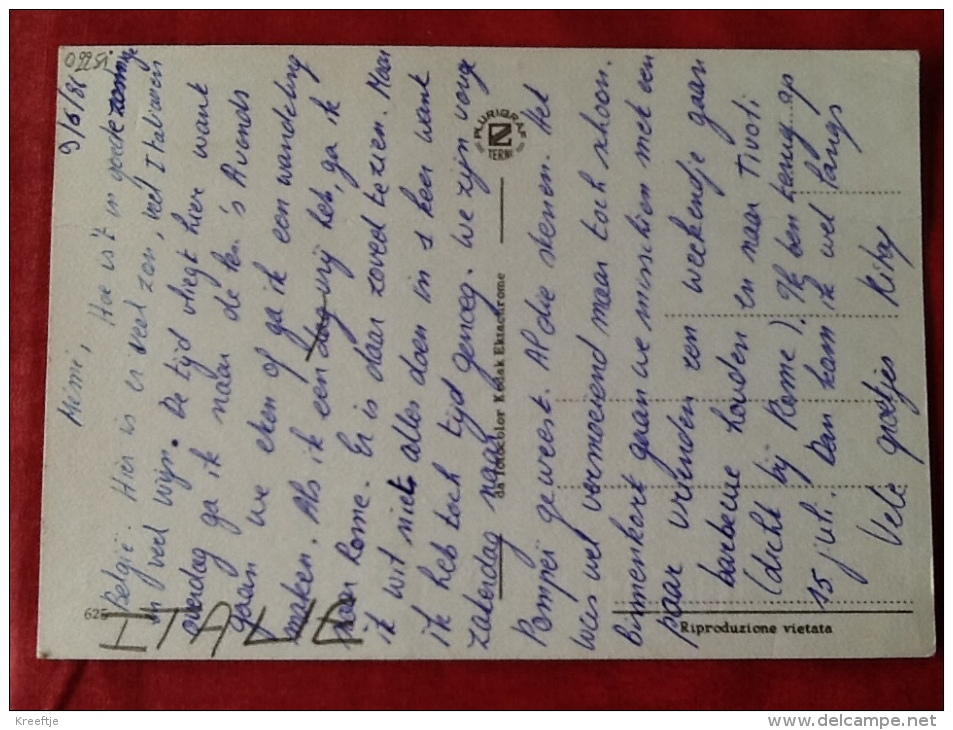 02251
9/6/86
Mémé,
Hoe is 't in goede zonnige
België. Hier is er veel zon, veel Italianen
en veel wijn. De tijd vliegt hier want
overdag ga ik naar de les. 's Avonds
gaan we eten of ga ik een wandeling
maken. Als ik een dag vrij heb, ga ik
naar Rome. Er is daar zoveel te zien. Maar
ik wil niet alles doen in 1 keer want
ik heb toch tijd genoeg. We zijn vorige
zaterdag naar
Pompeï geweest. Al die stenen. Het
was wel vermoeiend maar toch schoon.
Binnenkort gaan we misschien met een
paar vrienden een weekendje gaan
barbecue houden en naar Tivoli
(dicht bij Rome). Ik ben terug op
15 juli. Dan kom ik wel langs
Vele groetjes
ITALIE
625
PLURIGRAF
TERNI
da fotocolor Kodak Ektachrome
Riproduzione vietata
Kreeftje
www.delcampe.net